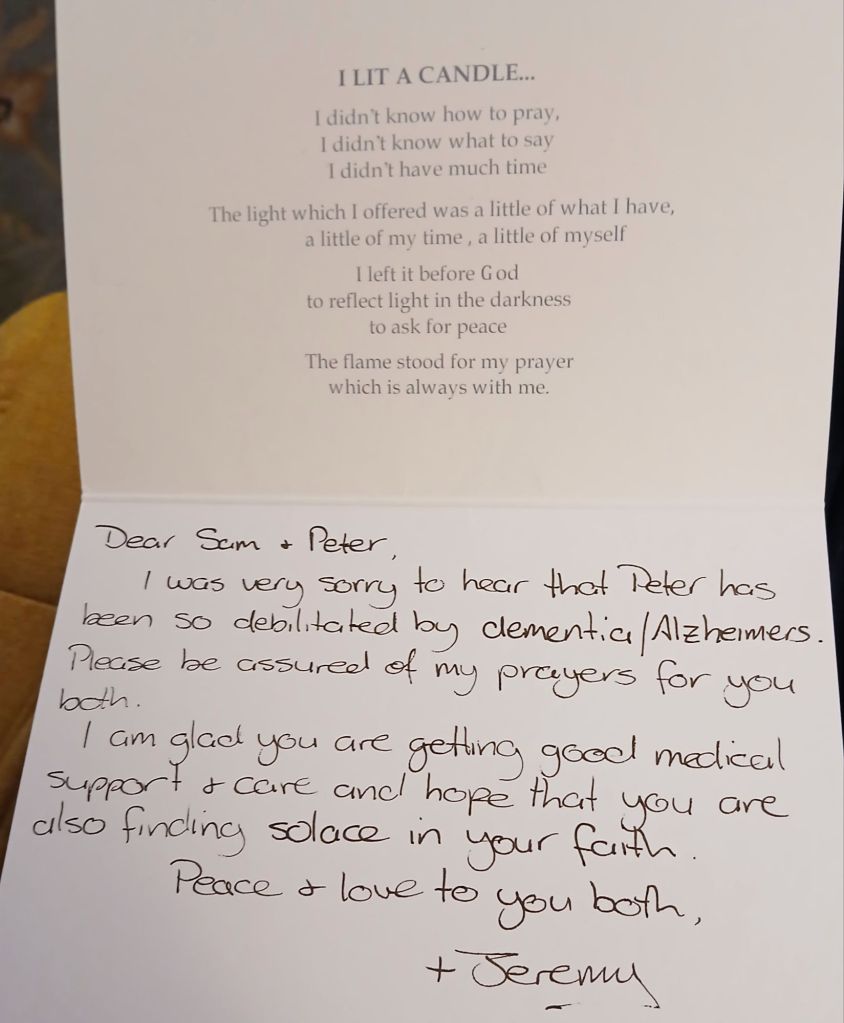 I LIT A CANDLE...
I didn't know how to pray,
I didn't know what to say
I didn't have much time
The light which I offered was a little of what I have,
a little of my time , a little of myself
I left it before God
to reflect light in the darkness
to ask for peace
The flame stood for my prayer
which is always with me.
Dear Sam + Peter,
I was very sorry to hear that Peter has
been so debilitated by dementia/Alzheimers.
Please be assured of my prayers for you
both.
I am glad you are getting good medical
support + care and hope that you are
also finding solace in your faith.
Peace + love to you both,
+ Jeremy